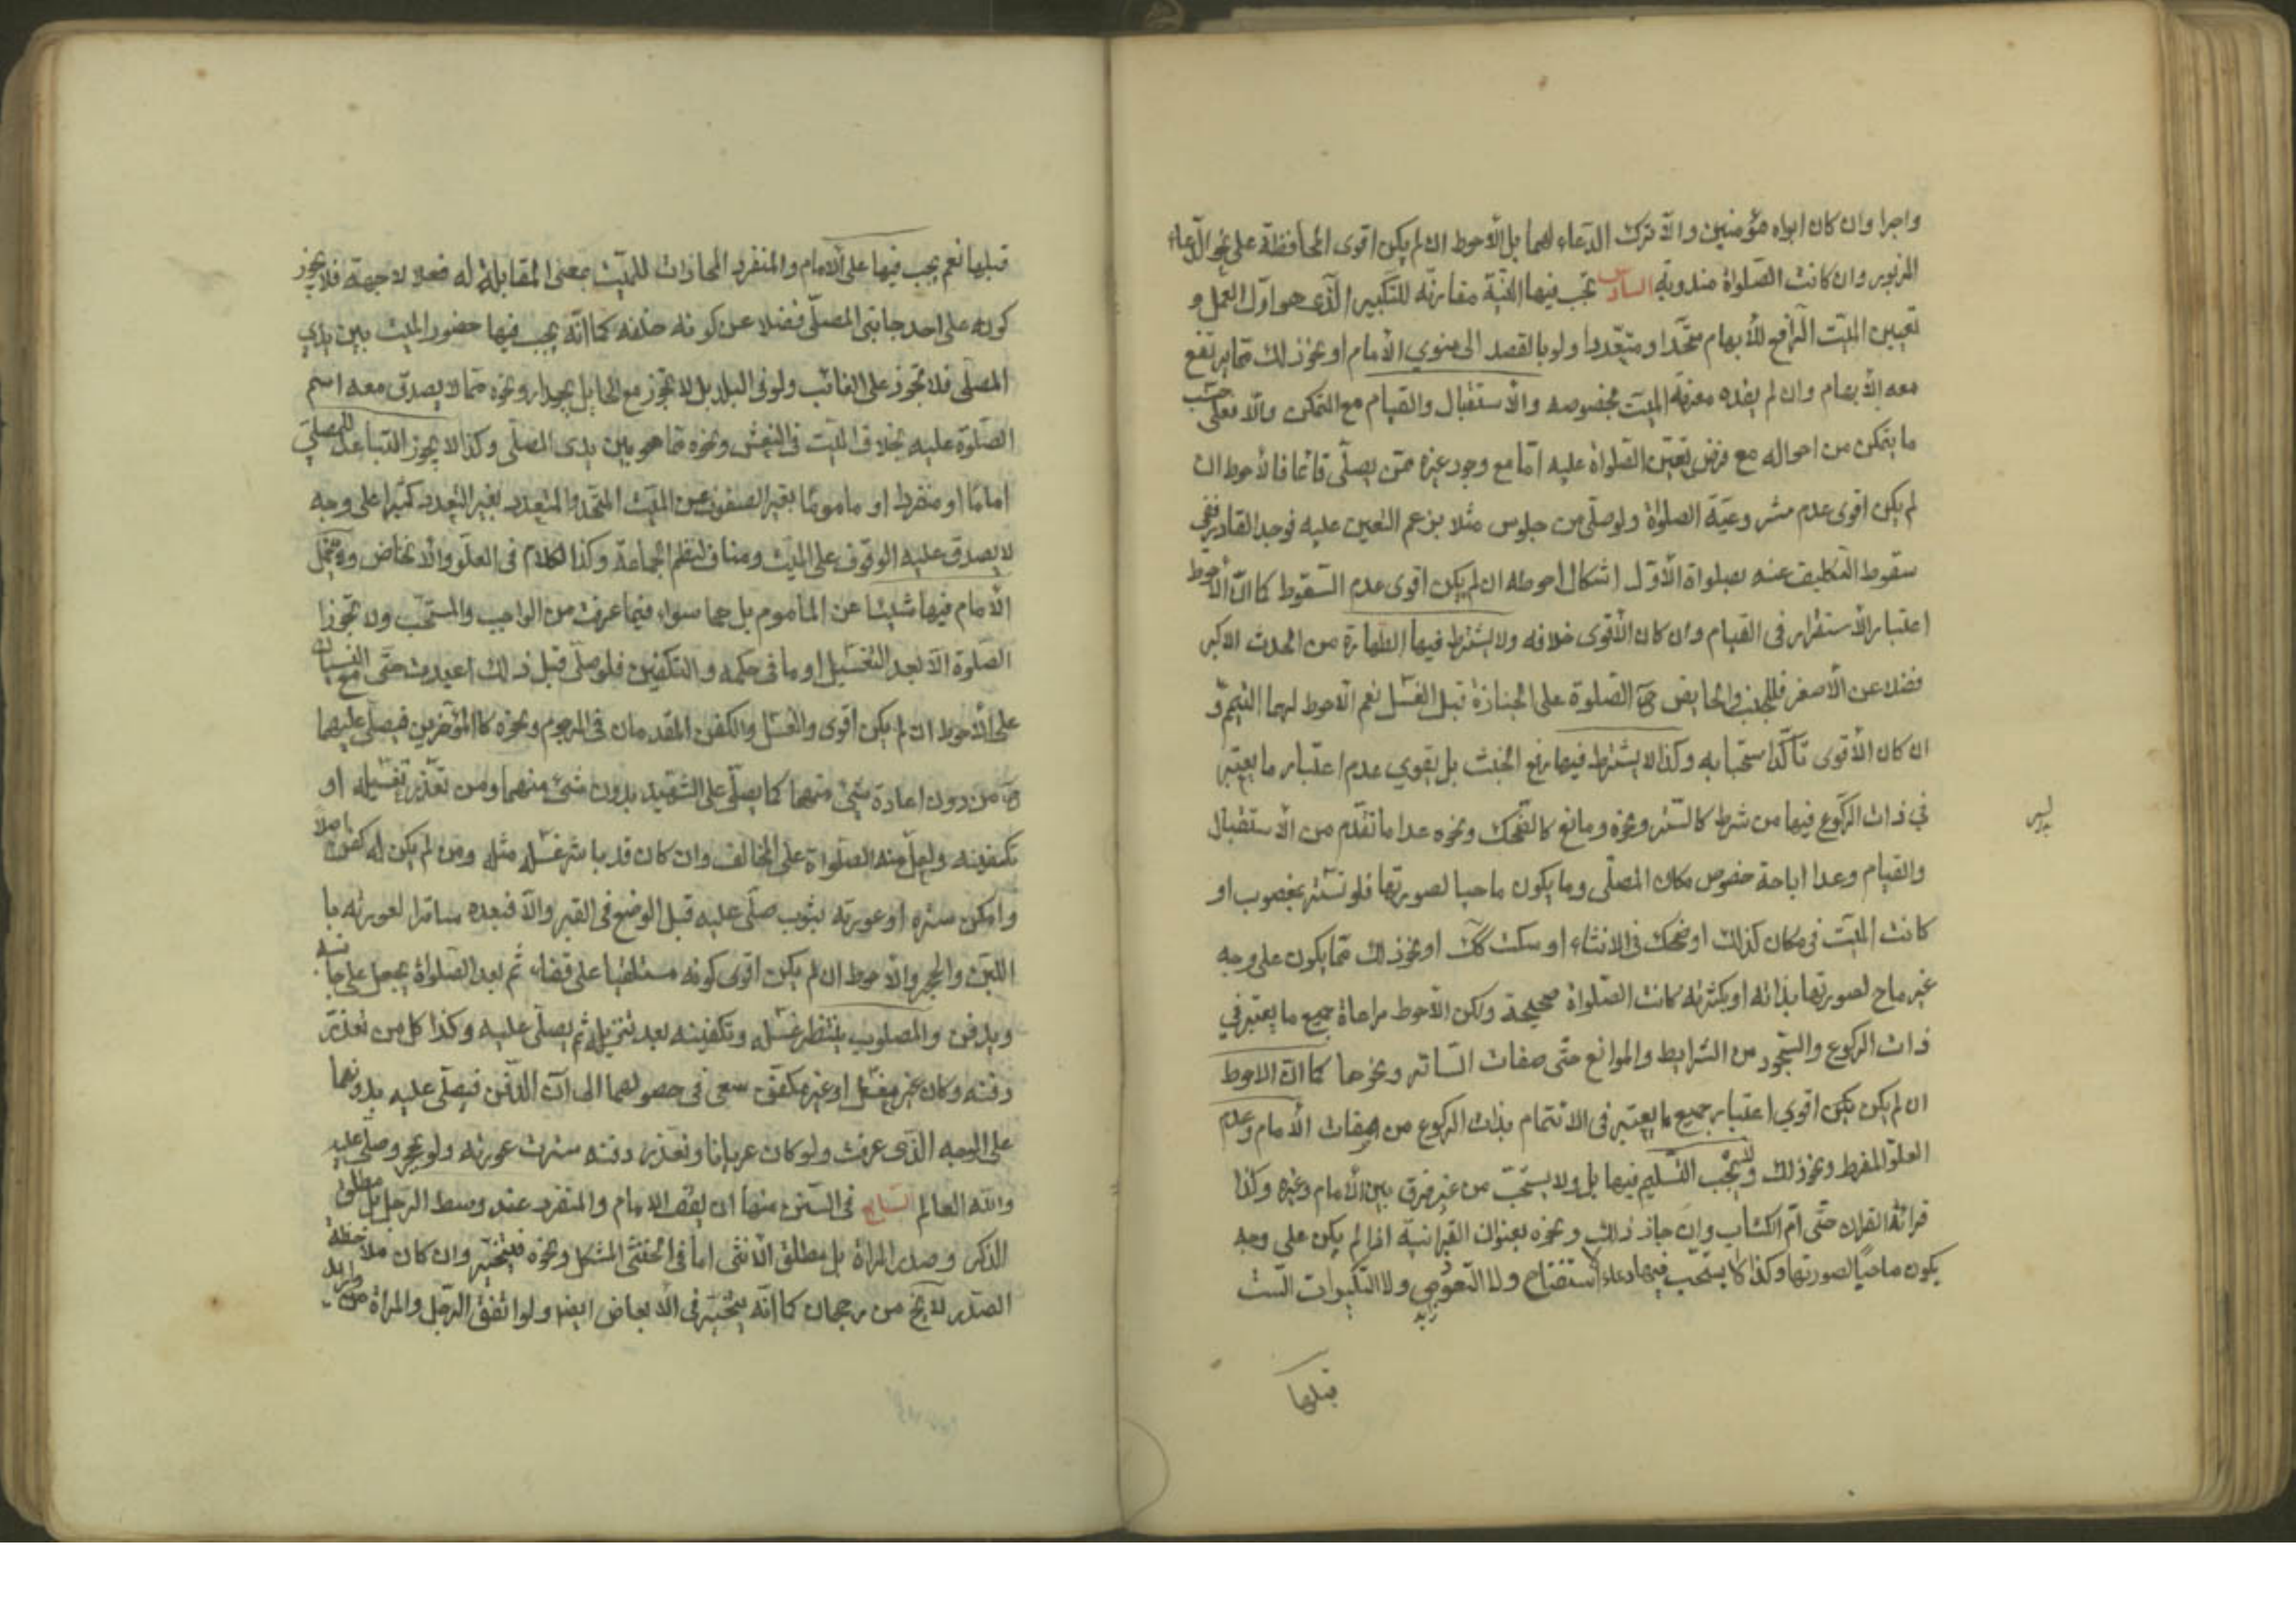 واجرا وان كان ابواه مؤمنين والّا ترك الدّعاء لهما بل الأحوط ان لم يكن اقوى المحافظة على نحو الدّعاء
المزبور وان كانت الصّلواة مندوبة السادس تجب فيها النيّة مقارنة للتكبير الّذي هو اوّل العمل و
تعيين الميّت الرّافع للأبهام متّحدا او متعّددا ولو بالقصد الى منوي الأمام او نحو ذلك ممّا يرتفع
معه الأبهام وان لم يفده معرفة الميّت بخصوصه والأستقبال والقيام مع التمكن والّا فعلى حسب
ما يتمكن من احواله مع فرض تعيّن الصّلواة عليه امّا مع وجود غيره ممّن يصلّي قائما فالأحوط ان
لم يكن اقوى عدم مشروعيّة الصلواة ولو صلّى من جلوس مثلا بزعم التعين عليه فوجد القادر ففي
سقوط التكليف عنه بصلواة الأوّل اشكال احوطه ان لم يكن اقوى عدم السّقوط كما انّ الأحوط
اعتبار الأستقرار في القيام وان كان الأقوى خلافه ولا يشترط فيها الطهارة من الحدث الاكبر
فضلا عن الأصغر فللجنب والحايض ح الصّلوة على الجنازة قبل الغسل نعم الاحوط لهما التيمّم و
ان كان الأقوى تأكّد استحبابه وكذا لا يشترط فيها رفع الخبث بل يقوي عدم اعتبار ما يعتبر
في ذات الركوع فيها من شرط كالستر ونحوه ومانع كالضّحك ونحوه عدا ما تقدّم من الأستقبال
والقيام وعدا اباحة خصوص مكان المصلّي وما يكون ماحيا لصورتها فلو تستّر بمغصوب او
كانت الميّت في مكان كذلك او ضحك في الاثناء او سكت كك او نحو ذلك ممّا يكون على وجه
غير ماح لصورتها بذاته او بكثرته كانت الصّلواة صحيحة ولكن الأحوط مراعاة جميع ما يعتبر في
ذات الركوع والسّجود من الشرايط والموانع حتّى صفات السّاتر ونحوها كما انّ الاحوط
ان لم يكن يكن اقوي اعتبار جميع ما يعتبر في الائتمام بذات الركوع من صفات الأمام وعدم
العلوّ المفرط ونحو ذلك وليس يجب التّسليم فيها بل ولا يستحبّ من غير فرق بين الأمام وغيره وكذا
قرائة القران حتّى امّ الكتاب وان جاز ذلك ونحوه بعنوان القرانية اذا لم يكن على وجه
يكون ماحيًا لصورتها وكذا لا يستحّب فيها دعاء الأستفتاح ولا التعوّض ولا التكبيرات السّت
قبلها
قبلها نعم يجب فيها على الامام والمنفرد المحاذات للميّت بمعنى المقابلة له فعلا لا جهة فلا يجوز
كونه على احد جانبي المصلّي فضلا عن كونه خلفه كما انّه يجب فيها حضور الميّت بين يدي
المصلّي فلا تجوز على الغائب ولو في البلد بل لا تجوز مع الحايل بجدار ونحوه ممّا لا يصدق معه اسم
الصّلوة عليه بخلاف الميّت في النعش ونحوه ممّا هو بين يدى المصلّي وكذا لا يجوز التباعد للمصلّي
امامًا او منفردا او ماموما بغير الصفوف عن الميّت المتّحد والمتعدد بغير التعدد كثيرا على وجه
لا يصدق عليه الوقوف على الميّت ومناف لنظم الجماعة وكذا الكلام في العلوّ والأنخفاض ولا يتحمّل
الأمام فيها شيئا عن الماموم بل هما سواء فيما عرفت من الواجب والمستحّب ولا تجوز
الصّلوة الّا بعد التغسيل او ما في حكمه والتكفين فلو صلّى قبل ذلك اعيدت حتّى مع النسيان
على الأحوط ان لم يكن اقوى والغسل والكفن المقدمان في المرجوم ونحوه كالمؤخرين فيصلّي عليهما
ح من دون اعادة شئ منهما كما يصلّي على الشهيد بدون شئ منهما ومن تعّذر تغسيله او
تكفينه ولعلّ منه الصّلواة على المخالف وان كان قد باشر غسله مثله ومن لم يكن له كفن اصلا
وامكن ستره او عورته بثوب صلّي عليه قبل الوضع في القبر والّا فبعده ساترا لعورته با
اللبن والحجر والأحوط ان لم يكن اقوى كونه مستلقيا على قفاه ثم بعد الصّلواة يجعل على جانبه
ويدفن والمصلوب ينتظر غسله وتكفينه بعد تنزيله ثم يصلّي عليه وكذا كل من تعذر
دفنه وكان غير مغسّل او غير مكفّن سعى في حصولهما الى آن الدّفن فيصلّي عليه بدونهما
على الوجه الّذي عرفت ولو كان عريانا وتعذر دفنه سترت عورته ولو بحجر وصلّي عليه
والله العالم السّابع في السّنن منها ان يقف الامام والمنفرد عند وسط الرجل بل مطلق
الذكر وصدر المراة بل مطلق الأنثى اما في الخنثى المشكل ونحوه فيتخيّر وان كان ملاحظة
الصّدر لا يخ من رجحان كما انّه يتخيّر في الأبعاض ايضا ولو اتّفق الرّجل والمراة